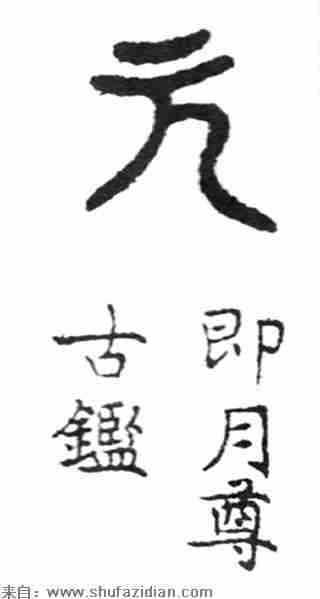 元
即月尊
古鑑
来自：www.shufazidian.com